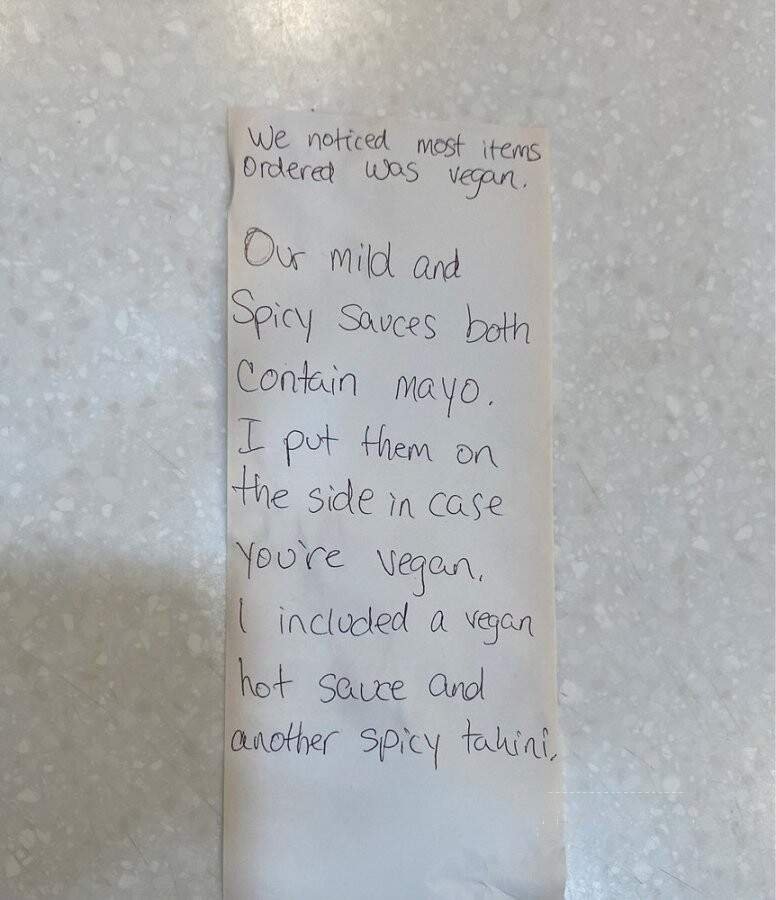 We noticed most items
Ordered was vegan.
Our mild and
Spicy Sauces both
Contain mayo.
I put them on
the side in case
you're vegan.
I included a vegan
hot sauce and
another spicy tahini.